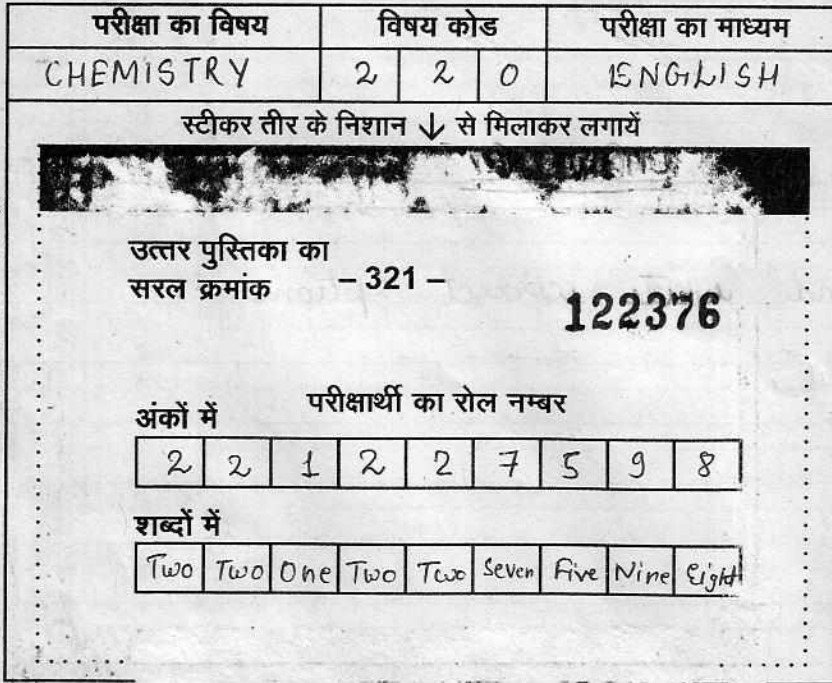 परीक्षा का विषय विषय कोड परीक्षा का माध्यम
CHEMISTRY 2 2 0 ENGLISH
स्टीकर तीर के निशान ↓ से मिलाकर लगायें
उत्तर पुस्तिका का
सरल क्रमांक – 321 –
122376
परीक्षार्थी का रोल नम्बर
अंकों में
2 2 1 2 2 7 5 9 8
शब्दों में
Two Two One Two Two Seven Five Nine Eight